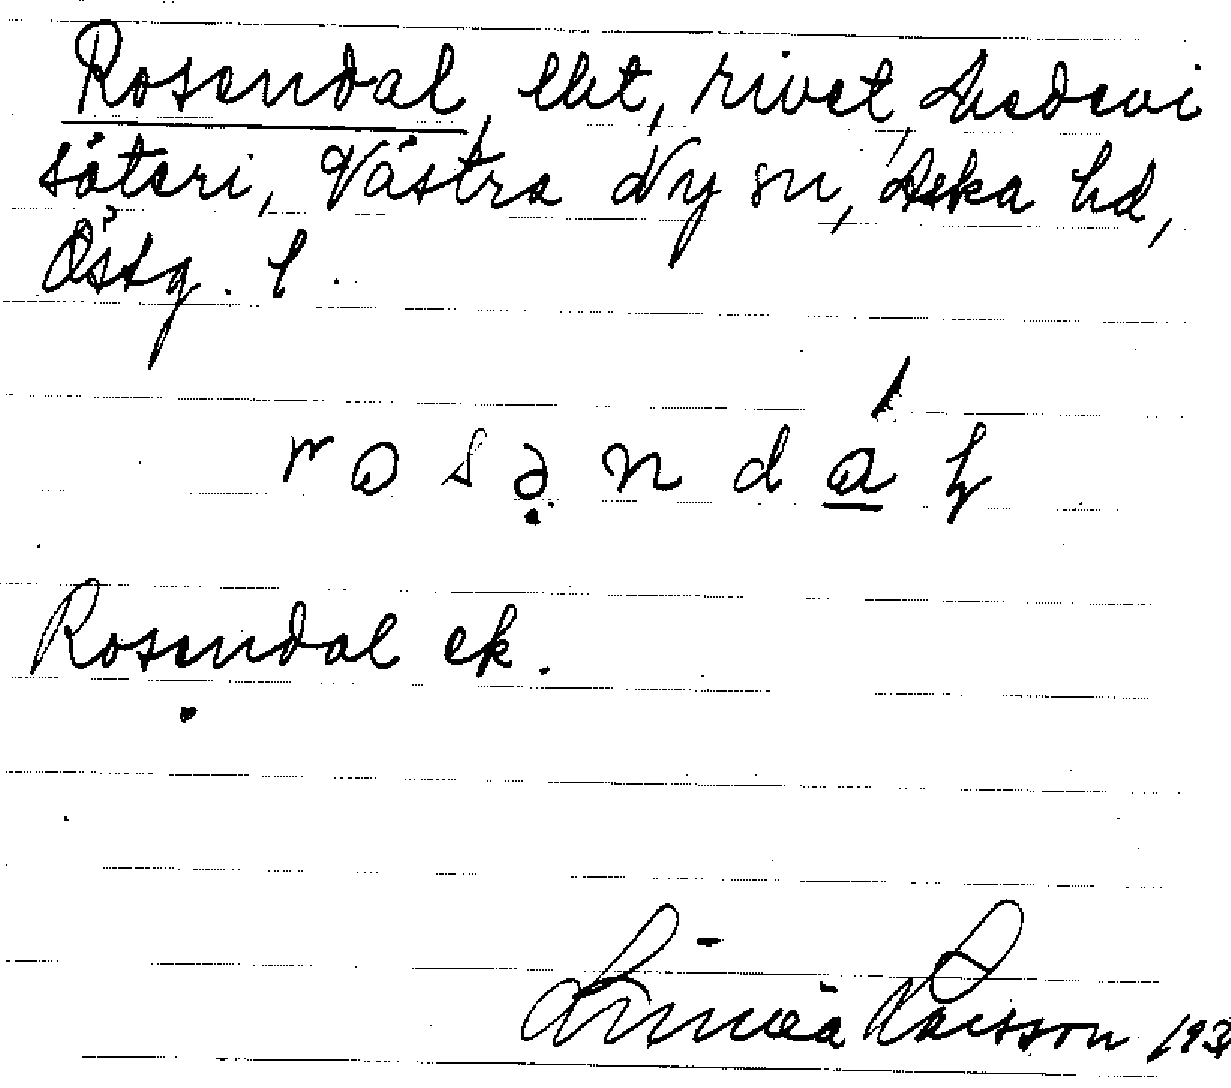 Rosendal, lht, rivet, Medevi
säteri, Västra Ny sn, Aska hd,
Östg. l.
Rosendal ek.
Linnéa Larsson 193